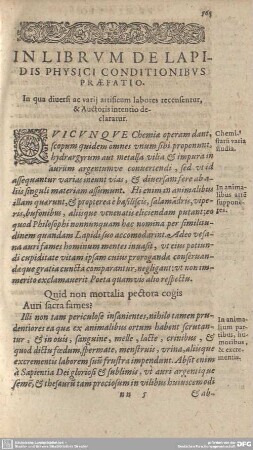 565
IN LIBRVM DE LAPI-
DIS PHYSICI CONDITIONIBVS
PRÆFATIO.
In qua diuersi ac varij artificum labores recensentur,
& Auctoris intentio de-
claratur.
QVICVNQVE Chemiæ operam dant,
scopum quidem omnes vnum sibi proponunt,
hydrargyrum aut metalla vilia & impura in
aurum argentumve conuertendi, sed vt id
assequantur varias ineunt vias, & diuersam fere ab
aliis singuli materiam assumunt. Hi enim in animalibus
illam quærunt, & propterea è basiliscis, salamãdris, vipe-
ris, bufonibus, aliisque venenatis eliciendam putant, eo
quod Philosophi nonnunquam hæc nomina per similitu-
dinem quandam Lapidi suo accomodarint. Adeo vesa-
na auri fames hominum mentes inuasit, vt eius potiun-
di cupiditate vitam ipsam cuius proroganda conseruan-
dæque gratia cuncta comparantur, negligant: vt non im-
merito exclamauerit Poeta quamuis alio respectu:
Quid non mortalia pectora cogis
Auri sacra fames?
Illi non tam periculose insanientes, nihilo tamen pru-
dentiores ea quæ ex animalibus ortum habent scrutan-
tur, & in ouis, sanguine, melle, lacte, crinibus, &
quod dictu fœdum, spermate, menstruis, vrina, aliisque
excrementis laborem suũ frustra impendant. Absit enim
à Sapientia Dei gloriosi & sublimis, vt auri argentique
semẽ, & thesaurũ tam preciosum in vilibus huiuscemodi
nn 5
& ab-
Chemi-
starũ varia
studia.
In anima-
libus alii
supponẽ-
In anima-
lium par-
tibus, hu-
moribus,
& excre-
mentis.